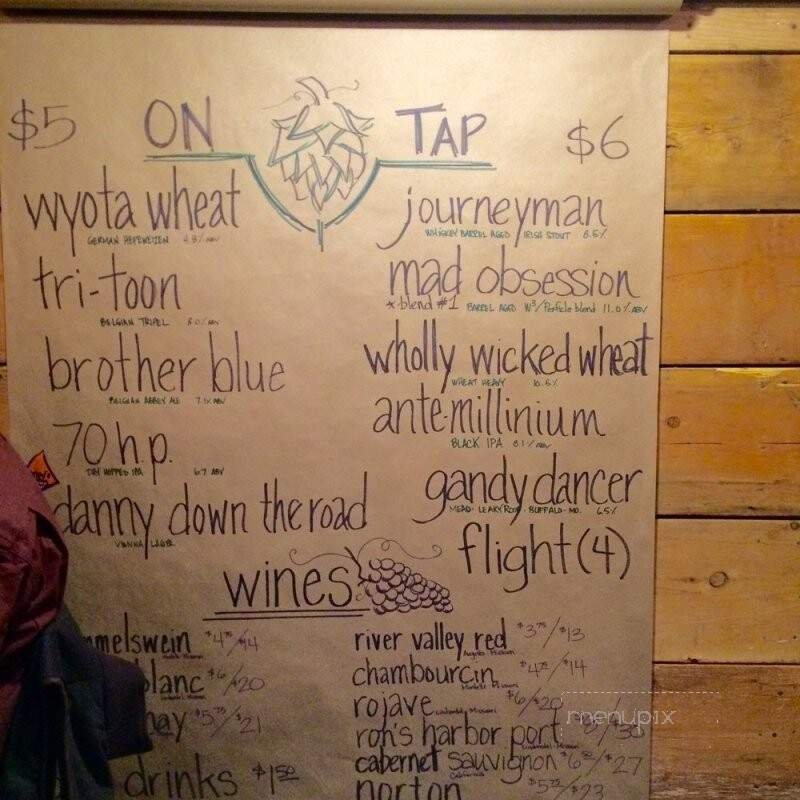 $5 ON TAP $6
wyota wheat
GERMAN HEFEWEIZEN 4.8% ABV
tri-toon
BELGIAN TRIPEL 8.0% ABV
brother blue
BELGIAN ABBEY ALE 7.1% ABV
70 h.p.
DRY HOPPED IPA 6.7 ABV
danny down the road
VIENNA LAGER
journeyman
WHISKEY BARREL AGED IRISH STOUT 8.5%
mad obsession
*blend #1 BARREL AGED W³/Parfele blend 11.0% ABV
wholly wicked wheat
WHEAT HEAVY 10.5%
ante-millinium
BLACK IPA 8.1% ABV
gandy dancer
MEAD· LEAKY ROOF· BUFFALO· MO. 6.5%
flight (4)
wines
mmelswein $4.75/$14
blanc $6/$20
nay $5.75/$21
drinks $1.50
river valley red $3.75/$13
Augusta Missouri
chambourcin $4.75/$14
rojave $6/$20
ron's harbor port $8/$30
cabernet sauvignon $6.25/$27
California
norton $5.75/$23
menupix